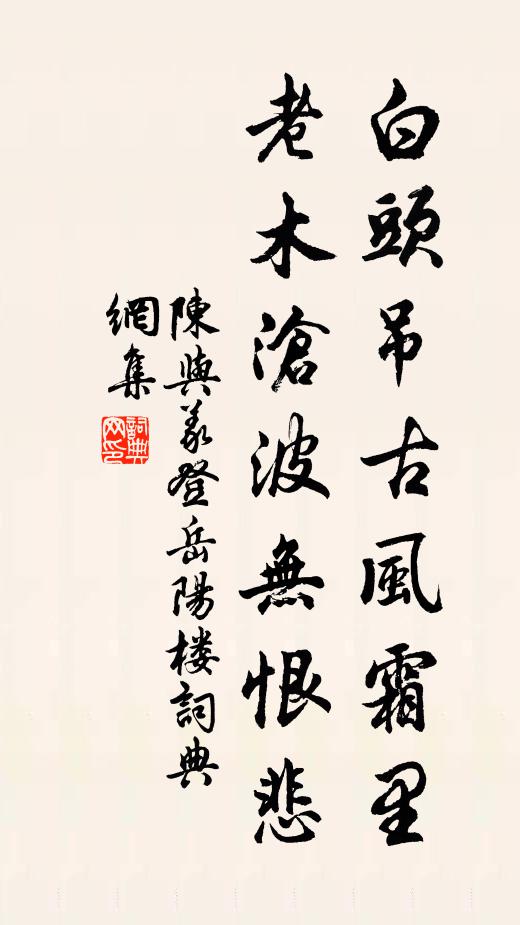 白頭吊古風霜里
老木滄波無恨悲
陳與義登岳陽楼詞典
網集
詞典
网印